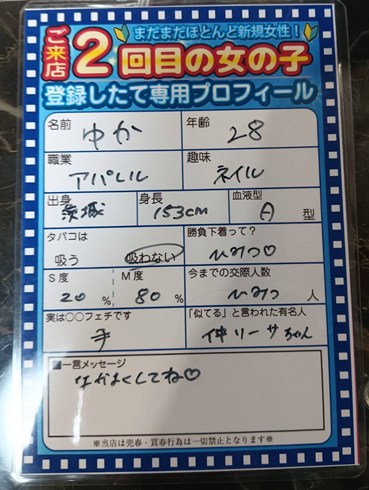 まだまだほとんど新規女性!
ご来店2回目の女の子
登録したて専用プロフィール
名前 ゆか 年齢 28
職業 アパレル 趣味 ネイル
出身 茨城 身長 153cm 血液型 A 型
タバコは 吸う 吸わない 勝負下着って? ひみつ♡
S度 20% M度 80% 今までの交際人数 ひみつ 人
実は○○フェチです 手 「似てる」と言われた有名人 仲リーサちゃん
■一言メッセージ
なかよくしてね♡
※当店は売春・買春行為は一切禁止となります※